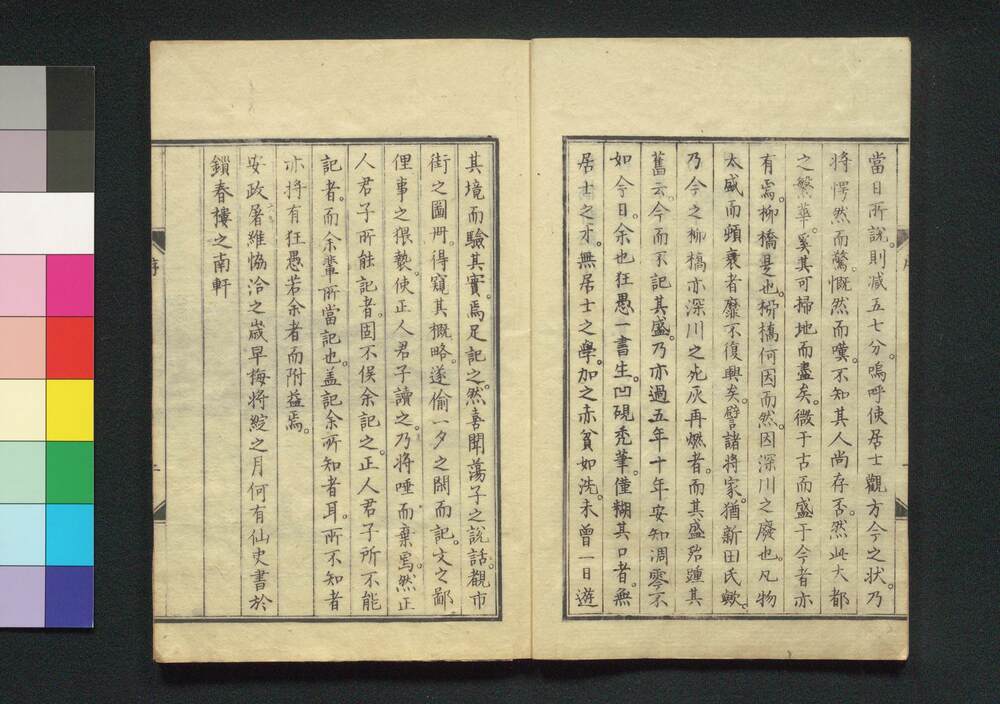 當日所說則減五七分。嗚呼使居士觀方今之状。乃
將愕然而驚。慨然而嘆。不知其人尚存否。然此大都
之繁華。奚其可掃地而盡矣。微于古而盛于今者亦
有焉。柳橋是也。柳橋何因而然。因深川之廢也。凡物
太盛而頻衰者靡不復興矣。譬諸將家。猶新田氏歟。
乃今之柳橋亦深川之死灰再燃者。而其盛殆踵其
舊云。今而不記其盛。乃亦過五年十年安知凋零不
如今日。余也狂愚一書生。凹硯禿筆。僅糊其口者。無
居士之才。無居士之學。加之赤貧如洗。未曾一日遊
其境而驗其實。焉足記之。然喜聞蕩子之說話。觀市
街之圖冊。得窺其概略。遂偷一夕之閑而記。文之鄙
俚事之猥褻。使正人君子讀之。乃將唾而棄焉。然正
人君子所能記者。固不俟余記之。正人君子所不能
記者。而余輩所當記也。盖記余所知者耳。所不知者
亦將有狂愚若余者而附益焉。
安政屠維協洽之歳早梅將綻之月何有仙史書於
鎖春樓之南軒
序